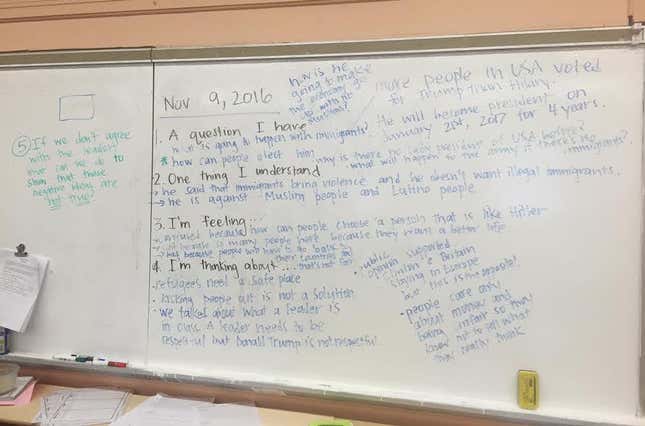 Nov 9, 2016
how is he
going to make
the economy
go up with no
more people in USA voted
for Trump than Hilary.
He will become president on
January 20th, 2017 for 4 years.
1. A question I have
what is going to happen with immigrants?
* how can people elect him
why is there no lady president of USA before?
what will happen to the army if there's no
immigrants?
2. One thing I understand
→ he said that immigrants bring violence and he doesn't want illegal immigrants.
→ he is against Muslim people and Latino people
3. I'm feeling...
confused because how can people choose a person that is like Hitler
because many people here because they want a better life
because people will have to go back to
their countries and
that's not fair
4. I'm thinking about...
refugees need a safe place
kicking people out is not a solution
we talked about what a leader is
in class A leader needs to be
respectful but Donald Trump is not respectful.
public
opinion supported
Clinton & Britain
staying in Europe
but this is the opposite!
people care only
about money and
being unfair so they
know not to tell what
they really think
⑤ If we don't agree
with the leader
how can we do to
show that those
negative things are
not true?